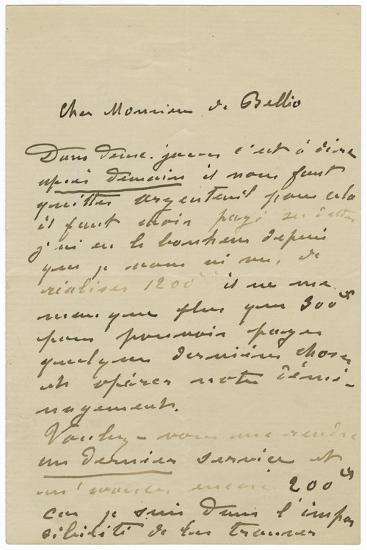 Cher Monsieur de Bellio
Dans deux jours c'est à dire
après demain il nous faut
quitter Argenteuil pour cela
il faut avoir payé ses dettes
j'ai eu le bonheur depuis
que je vous ai vu, de
réaliser 1200 il ne me
manque plus que 300
pour pouvoir payer
quelques dernières choses
et opérer notre démé-
nagement.
Voulez-vous me rendre
un dernier service et
m'avancer encore 200
car je suis dans l'impos
sibilité de les trouver